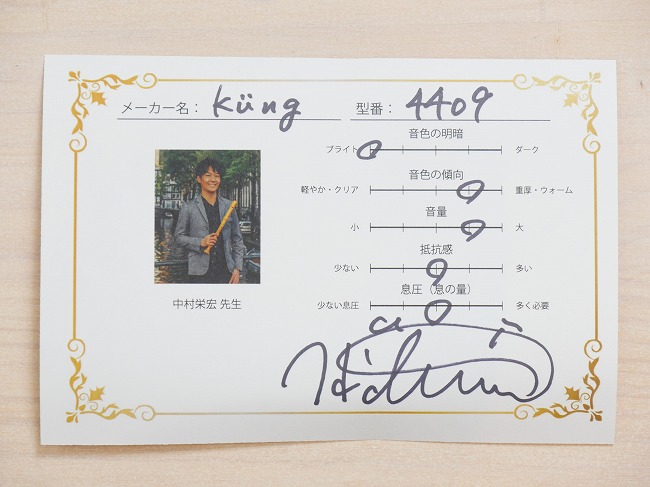 メーカー名： Küng
型番： 4409
音色の明暗
ブライト ダーク
音色の傾向
軽やか・クリア 重厚・ウォーム
音量
小 大
抵抗感
少ない 多い
息圧（息の量）
少ない息圧 多く必要
中村栄宏 先生